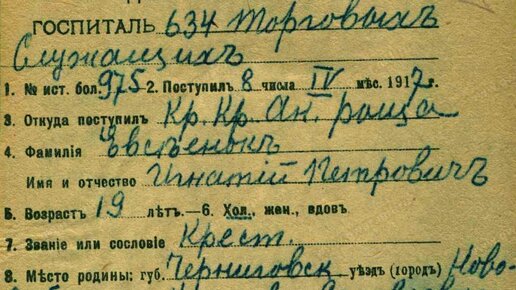 ГОСПИТАЛЬ 634 Торговыхъ
Служащихъ
1. № ист. бол. 975 2. Поступилъ 8 числа IV мѣс. 1917 г.
3. Откуда поступилъ Кр. Кр. Ан. роща
4. Фамилія Евсѣенокъ
Имя и отчество Игнатій Петровичъ
5. Возрастъ 19 лѣтъ.—6. Хол., жен., вдовъ.
7. Званіе или сословіе Крест.
8. Мѣсто родины; губ. Черниговск уѣздъ (городъ) Ново-